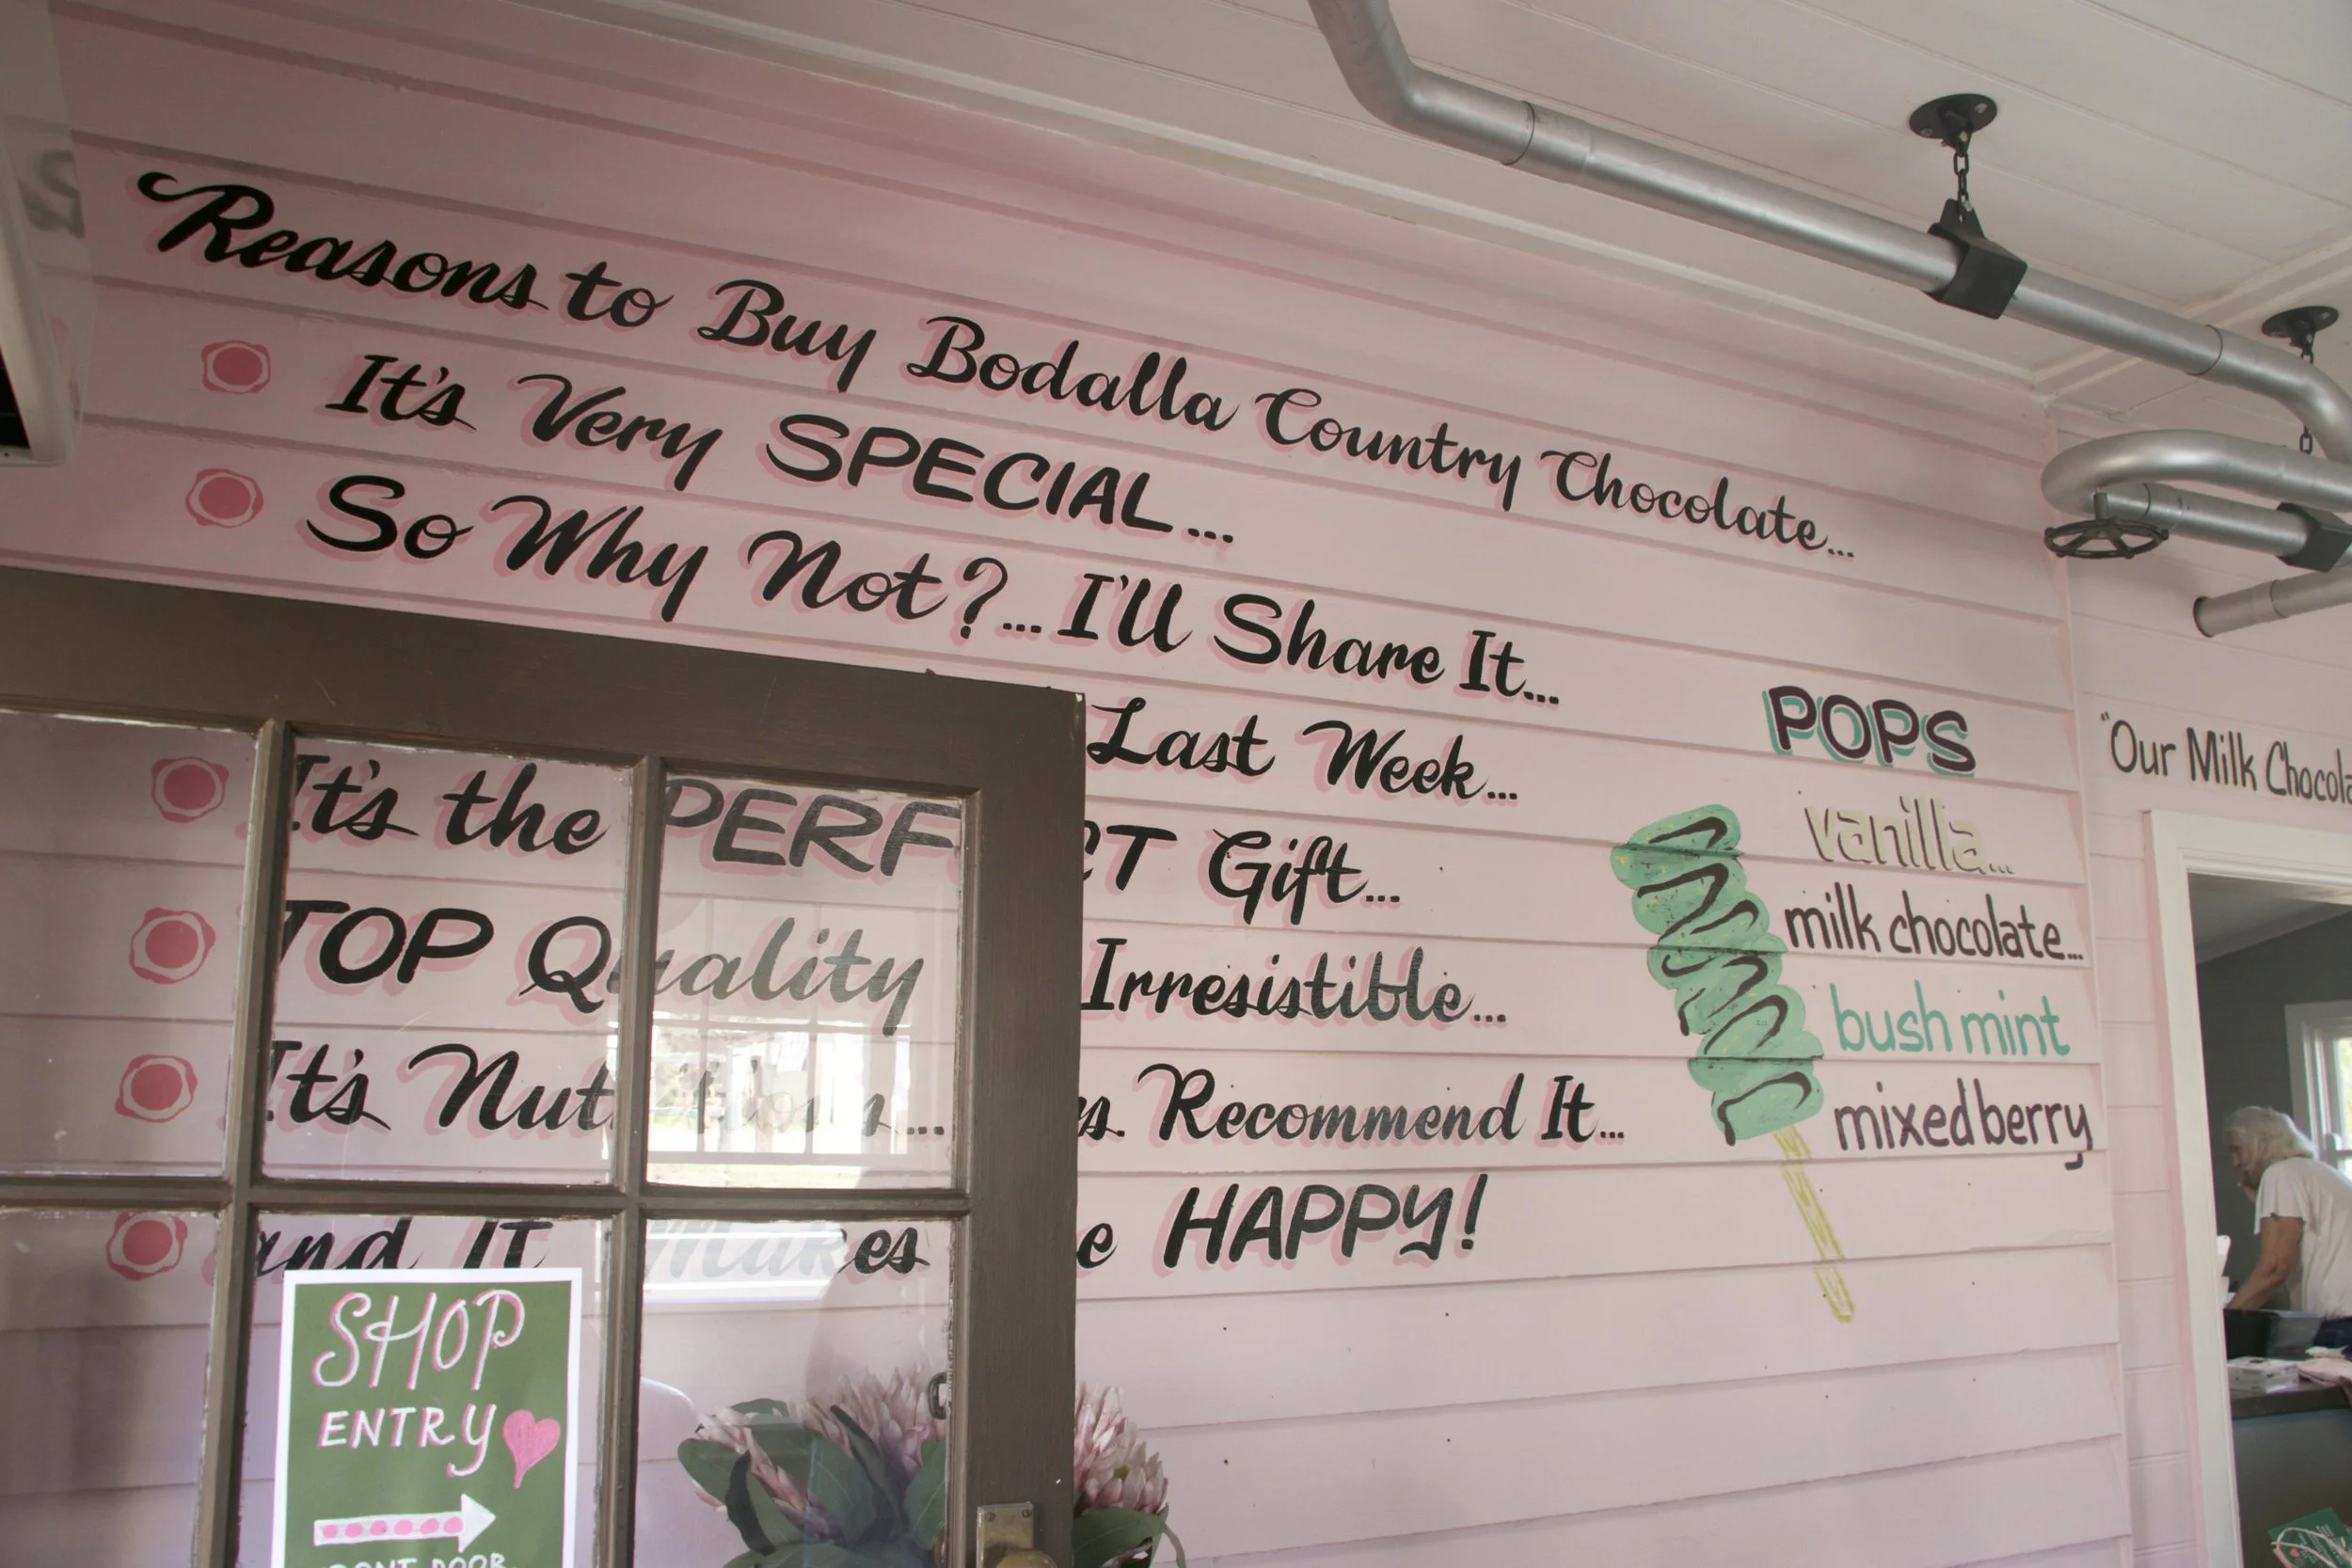 Reasons to Buy Bodalla Country Chocolate...
It's Very SPECIAL...
So Why Not?... I'll Share It...
Last Week...
It's the PERF CT Gift...
TOP Quality Irresistible...
It's Nut ... Recommend It...
and It Makes HAPPY!
POPS
vanilla...
milk chocolate...
bush mint
mixed berry
"Our Milk
SHOP
ENTRY
DOOR